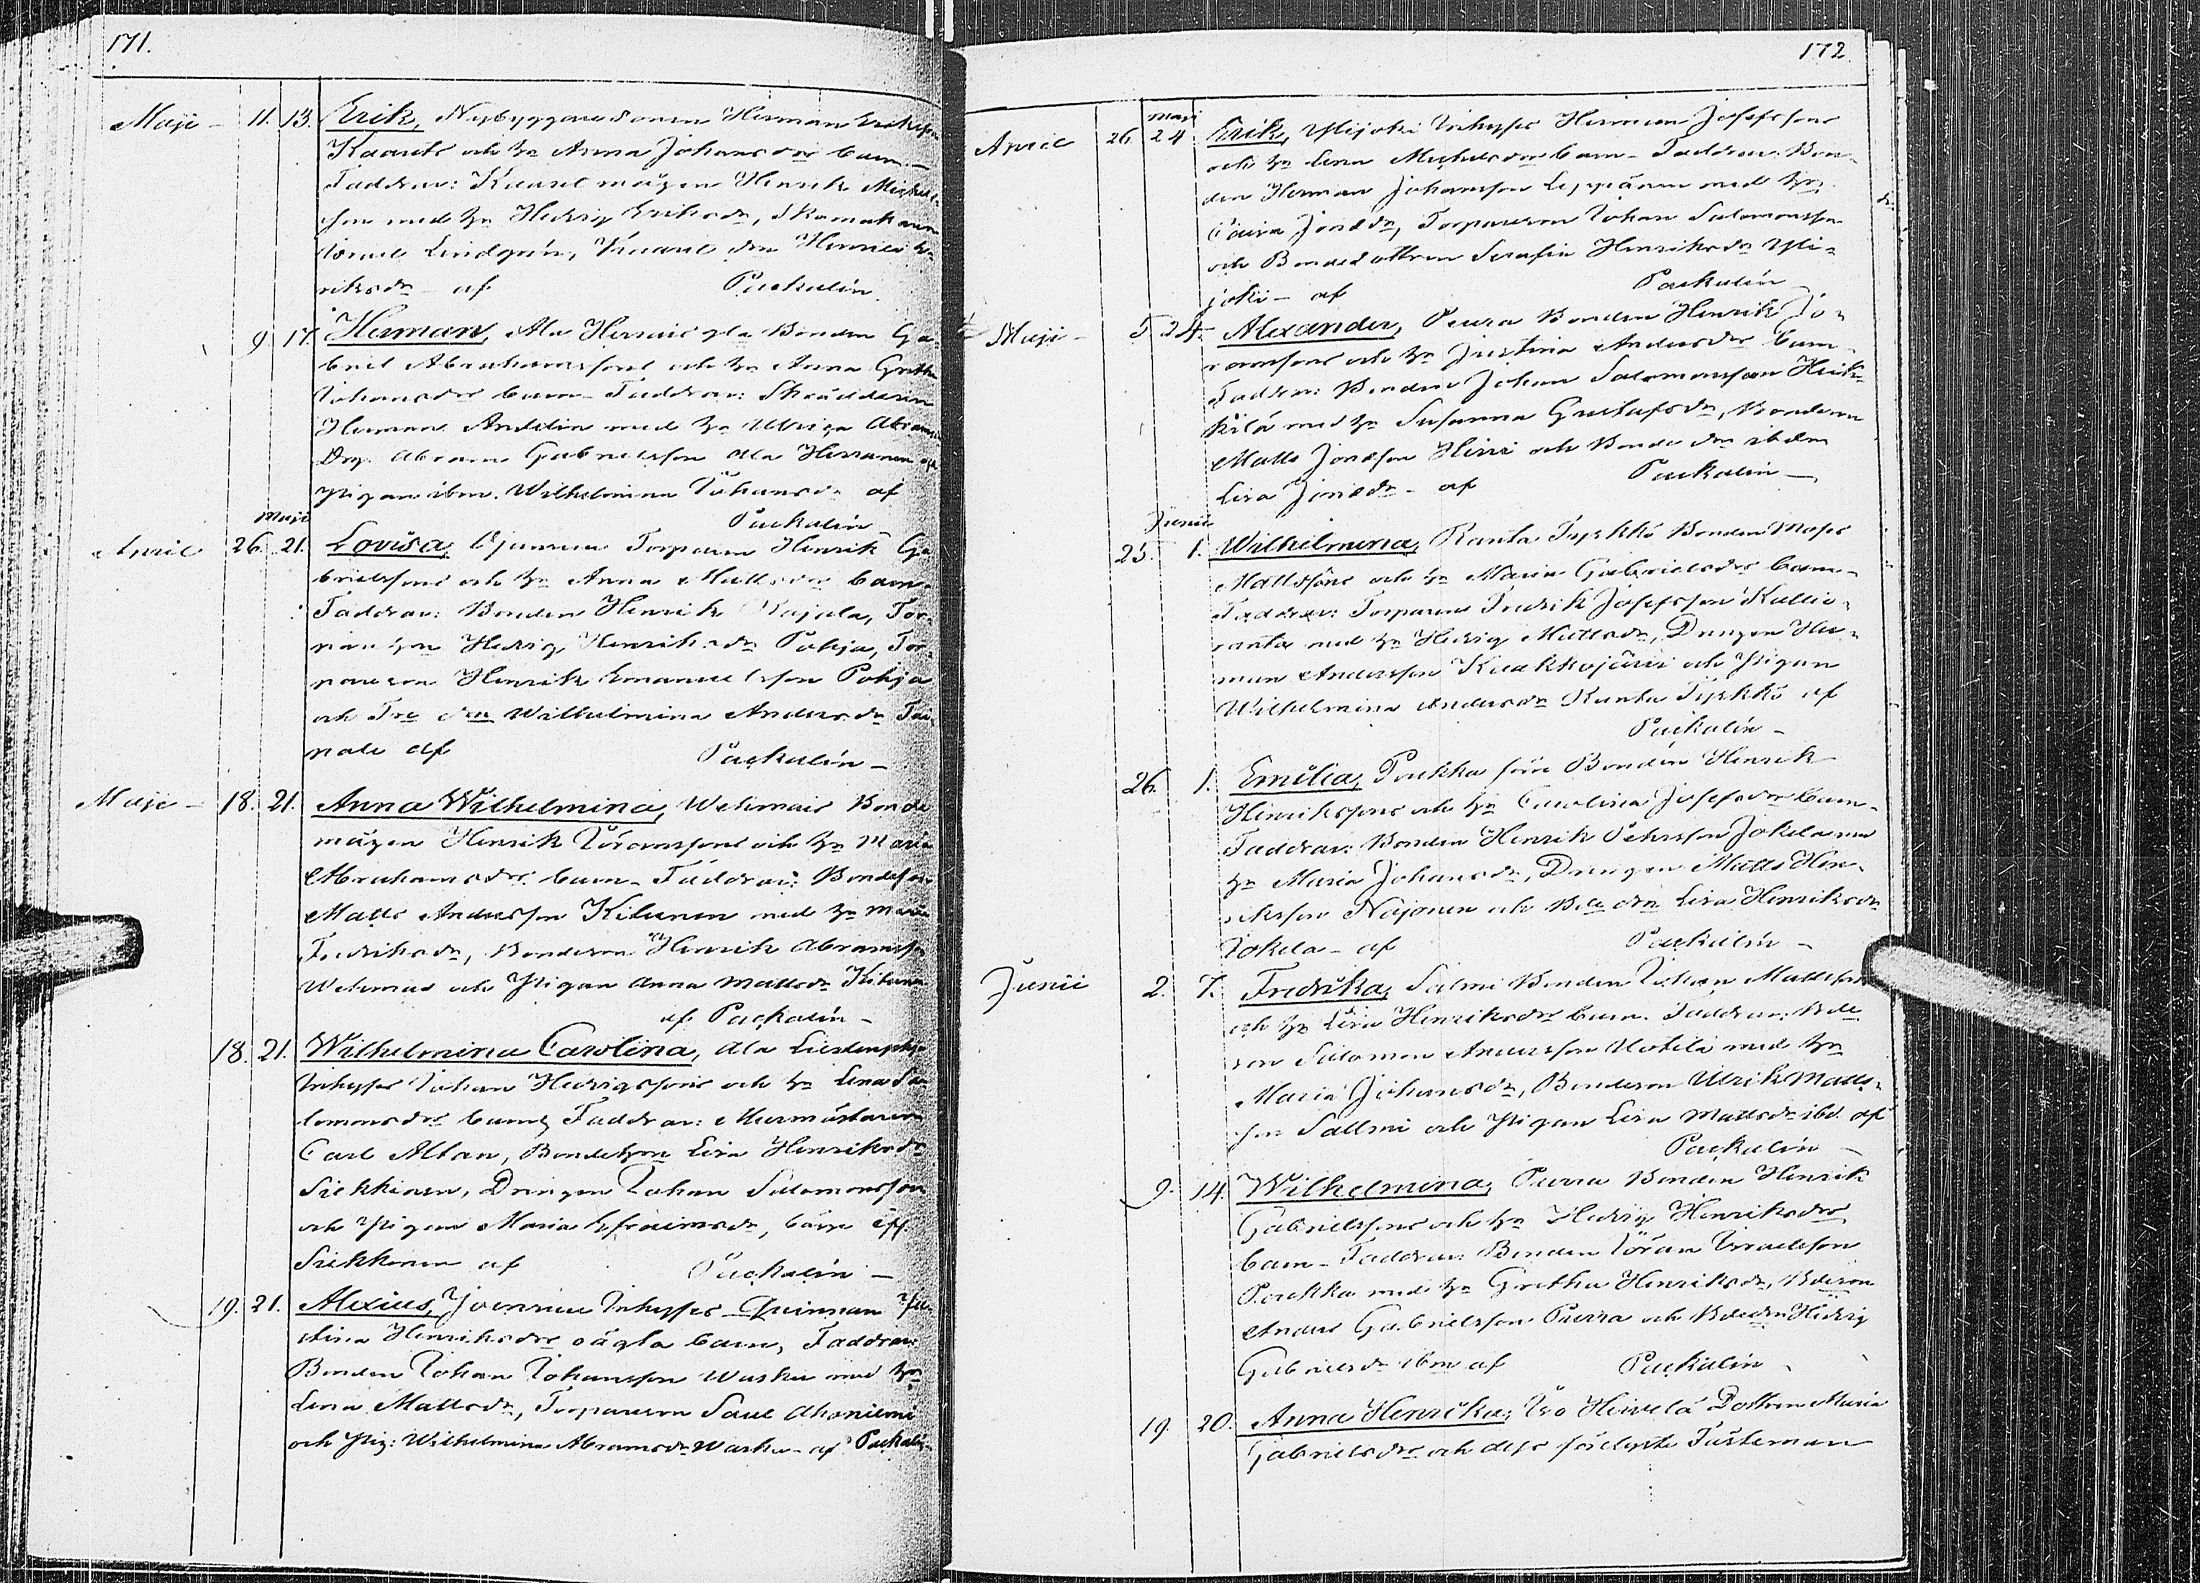 171.
Maji - 11. 13. Erik, Nybyggaresonen Herman Eriks
Kaarits och hu Anna Johansdrs barn -
Faddrar: Knaust mågen Henrik Michels-
son med hu Hedvig Eriksdr, Skomakaren
Lindgrén, dn Henrica Hen-
riksdr - af Packalén
9 17. Herman, Ala Herrais gla Bonden Ga-
briel Abrahamssons och hu Anna Gretha
Johansdrs barn - Faddrar: Skräddaren
Herman Andelin med hu Ulrica Abrams
Drg. Abram Gabrielsson Ala Herranen och
Pigan ibm. Wilhelmina Johansdr af
Packalén -
Maji
April 26. 21. Lovisa, Torparen Henrik Ga-
brielssons och hu Anna Mattsdrs barn.
Faddrar: Bonden Henrik Rajala, Tor-
pare hun Hedvig Henriksdr Pohja, Tor-
pareson Henrik Emanuelsson Pohja
och Tre dn Wilhelmina Andersdr Tai
pale af Packalén -
Maji - 18. 21. Anna Wilhelmina, Wehmais Bonde
mågen Henrik Göranssons och hu Maria
Abrahamsdrs barn - Faddrar: Bondeson
Matts Andersson Kilunen med hu Maria
Fredriksdr, Bondeson Henrik Abramsson
Wehmas och Pigan Anna Mattsdr Kilunen
af Packalén -
18. 21. Wilhelmina Carolina, Ala
Inhyses Johan Hedvigssons och hu Lena Sa
lomonsdrs barn, Faddrar: Murmästaren
Carl Altan, Bondehun Lisa Henriksdr
Siekkinen, Drengen Johan Salomonsson
och Pigan Maria Efraimsdr, båge
Siekkinen af Packalén -
19. 21. Alexius, Inhyses Quinnan Ju
stina Henriksdrs oägta barn, Faddrar
Bonden Johan Johansson Wasku med hu
Lena Mattsdr, Torpareson Saul Ahoniemi
och Pig: Wilhelmina Abramsdr Waskus - af Packalén
172.
Maji
April 26. 24 Erik, Ylijoki Inhyses Herman Josefssons
och hu Lena Michelsdrs barn - Faddrar: Bon-
den Herman Johansson Leppänen med hu
Caisa Jonasdr, Torpareson Johan Salomonsson
och Bondedottren Serafia Henriksdr Yli-
joki - af Packalén
Maji - 5 24. Alexander, Peura Bonden Henrik Jö-
ranssons och hu Justina Andersdrs barn.
Faddrar: Bonden Johan Salomonsson Heik-
kilä med hu Susanna Gustafsdr, Bondeson
Matts Jonsson Hirvi och Bonde dn ibdm
Lisa Jonsdr - af Packalén -
Junii
25. 1. Wilhelmina, Ranta Tyrkkö Bonden Moses
Mattssons och hu Maria Gabrielsdrs barn -
Faddrar: Torparen Fredrik Josefsson Kallio-
ranta med hu Hedvig Mattsdr, Drengen Her-
man Andersson Kuukkajärvi och Pigan
Wilhelmina Andersdr Ranta Tyrkkö af
Packalén -
26. 1. Emilia, Poukka före Bonden Henrik
Henrikssons och hu Carolina Josefsdrs barn -
Faddrar: Bonden Henrik Pehrsson Jokela med
hu Maria Johansdr, Drengen Matts Hen-
riksson Näjonen och Bde dn Lisa Henriksdr
Jokela - af Packalén -
Junii 2. 7. Fredrika, Salmi Bonden Johan Mattssons
och hu Lisa Henriksdrs barn. Faddrar: Bde
son Salomon Andersson Uotila med hu
Maria Johansdr, Bondeson Ulrik Matts-
son Sallmi och Pigan Lisa Mattsdr ibd. af
Packalén -
9. 14. Wilhelmina, Peura Bonden Henrik
Gabrielssons och hu Hedvig Henriksdrs
barn - Faddrar: Bonden Göran Israelsson
Poukka med hu Gretha Henriksdr, Bdeson
Anders Gabrielsson Peura och Bdedn Hedvig
Gabrielsdr ibm af Packalén -
19. 20. Anna Henrika, Iso Heivelä Dottren Maria
Gabrielsdrs och dess förelgste Fästeman